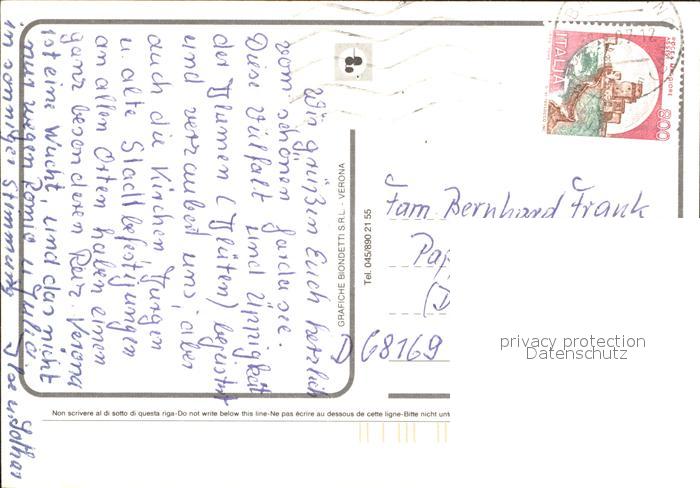 Wir grüßen Euch herzlich
vom schönen Gardasee.
Diese Vielfalt und Üppigkeit
der Blumen (Blüten) begeistert
und verzaubert uns, aber
auch die Kirchen, Burgen
u. alte Stadtbefestigungen
an allen Orten haben einen
ganz besonderen Reiz. Verona
ist eine Wucht, und das nicht
nur wegen Romio u. Julia.
in sonniger Stimmung Ilse u. Lothar
GRAFICHE BIONDETTI S.R.L. - VERONA
Tel. 045/890 21 55
ITALIA
800
Fam. Bernhard Frank
D 68169
privacy protection
Datenschutz
Non scrivere al di sotto di questa riga-Do not write below this line-Ne pas écrire au dessous de cette ligne-Bitte nicht unt